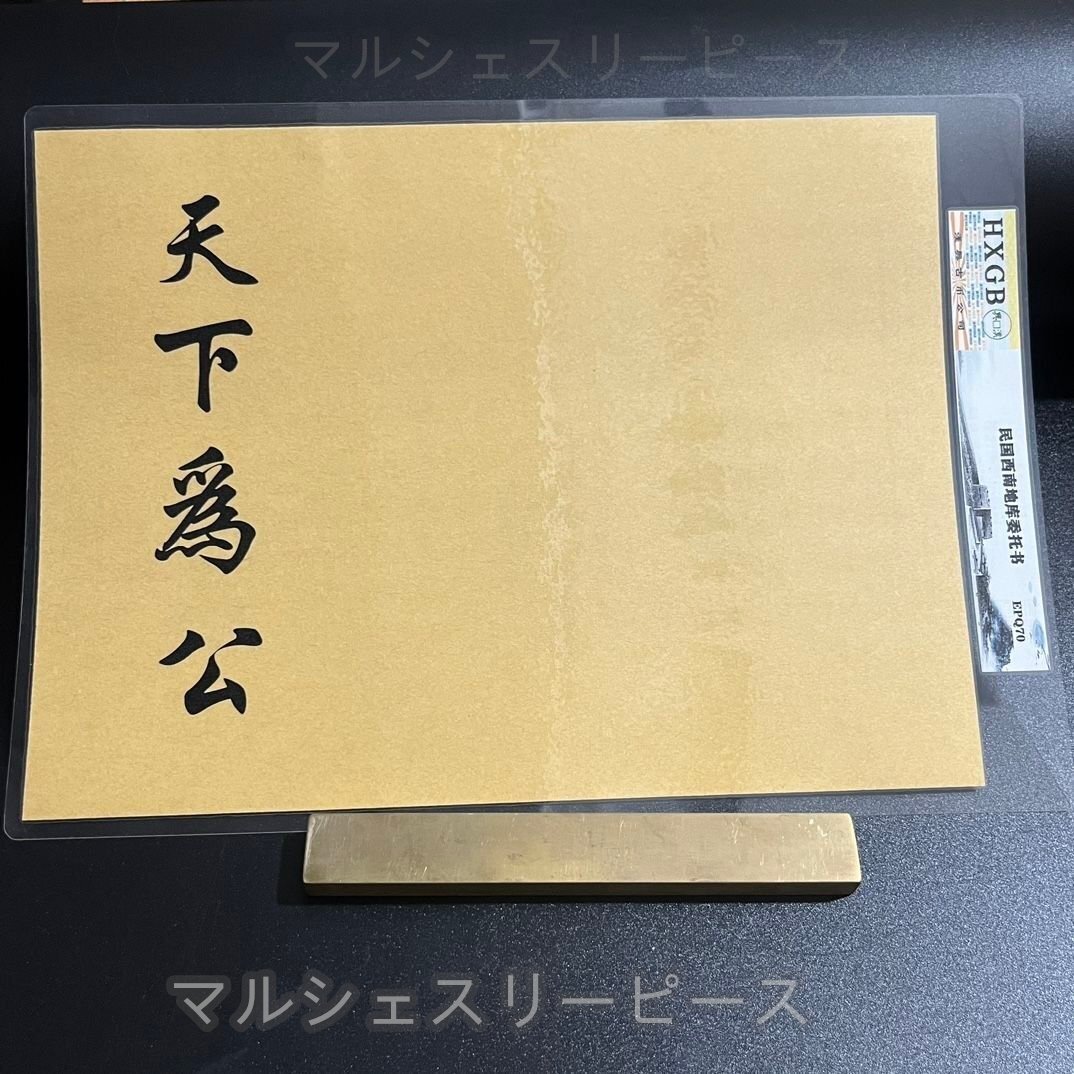 マルシェスリーピース
天下爲公
HXGB
漢興古币公司
民国西南地库委托书
EPQ70
マルシェスリーピース